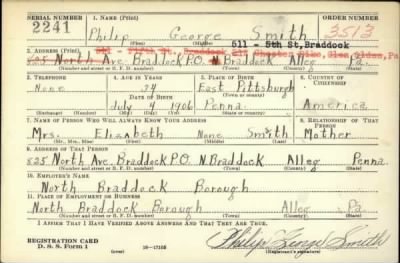 SERIAL NUMBER
1. NAME (Print)
ORDER NUMBER
2241
Philip George Smith
3513
(First) (Middle) (Last)
611 - 5th St, Braddock
2. ADDRESS (Print)
825 North Ave. Braddock P.O. N. Braddock Alleg Pa.
(Number and street or R. F. D. number) (Town) (County) (State)
3. TELEPHONE
4. AGE IN YEARS
5. PLACE OF BIRTH
6. COUNTRY OF CITIZENSHIP
None
34
East Pittsburgh
DATE OF BIRTH
(Town or county)
July 4 1906
Penna.
America
(Exchange) (Number)
(Mo.) (Day) (Yr.)
(State or country)
7. NAME OF PERSON WHO WILL ALWAYS KNOW YOUR ADDRESS
8. RELATIONSHIP OF THAT PERSON
Mrs. Elizabeth None Smith Mother
(Mr., Mrs., Miss) (First) (Middle) (Last)
9. ADDRESS OF THAT PERSON
825 North Ave. Braddock P.O. N. Braddock Alleg Penna.
(Number and street or R. F. D. number) (Town) (County) (State)
10. EMPLOYER'S NAME
North Braddock Borough
11. PLACE OF EMPLOYMENT OR BUSINESS
North Braddock Borough Alleg Pa.
(Number and street or R. F. D. number) (Town) (County) (State)
I AFFIRM THAT I HAVE VERIFIED ABOVE ANSWERS AND THAT THEY ARE TRUE.
REGISTRATION CARD
D. S. S. Form 1
(over)
16-17105
Philip George Smith
(Registrant's signature)